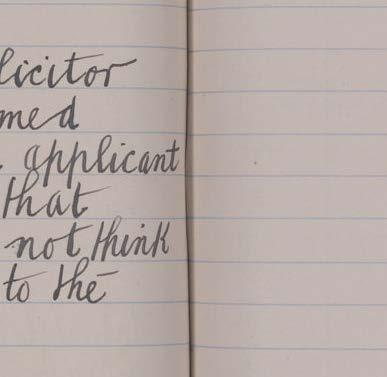 licitor
med
applicant
that
not think
to the